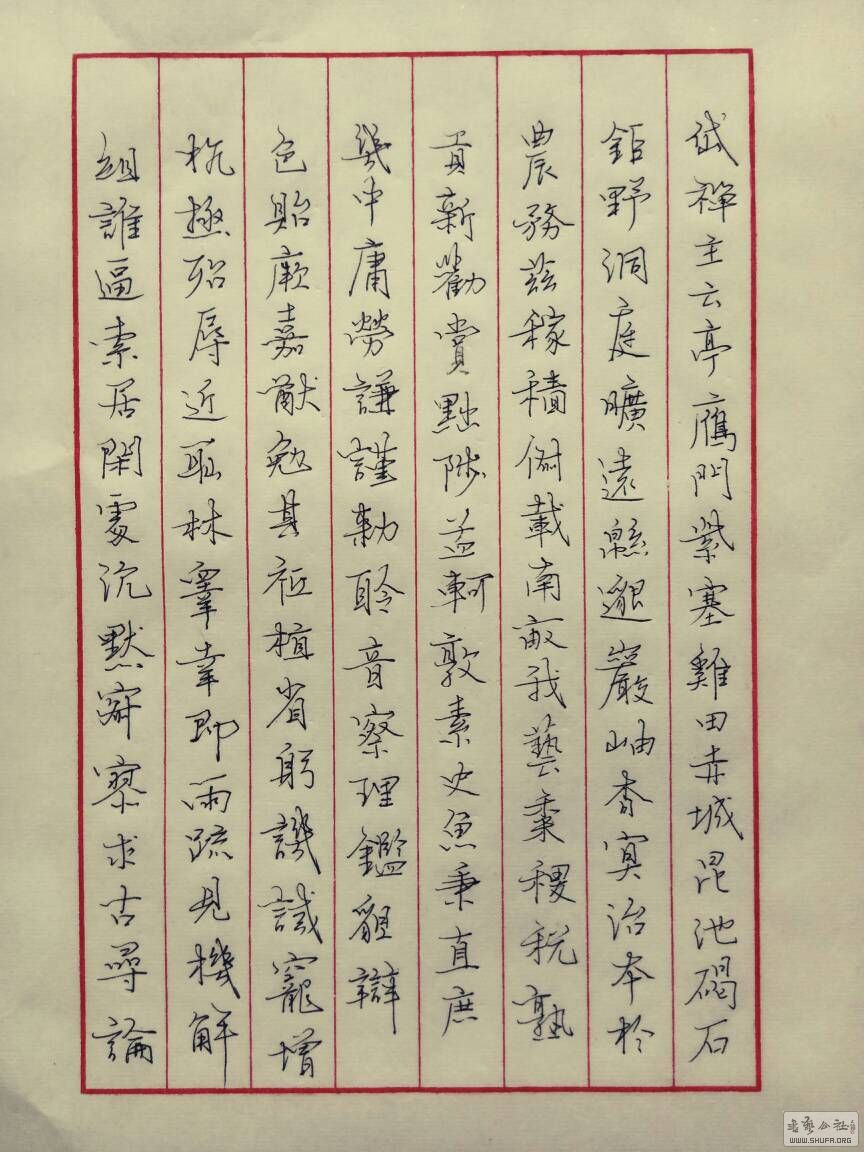 岱禅主云亭鴈門紫塞雞田赤城昆池碣石
鉅野洞庭曠遠緜邈巖岫杳冥治本於
農務茲稼穡俶載南畝我藝黍稷稅熟
貢新勸賞黜陟孟軻敦素史魚秉直庶
幾中庸勞謙謹勅聆音察理鑑貌辯
色貽厥嘉猷勉其祗植省躬譏誡寵增
抗極殆辱近恥林睪幸即兩疏見機解
組誰逼索居閑處沉默寂寥求古尋論
书艺公社
WWW.SHUFA.ORG